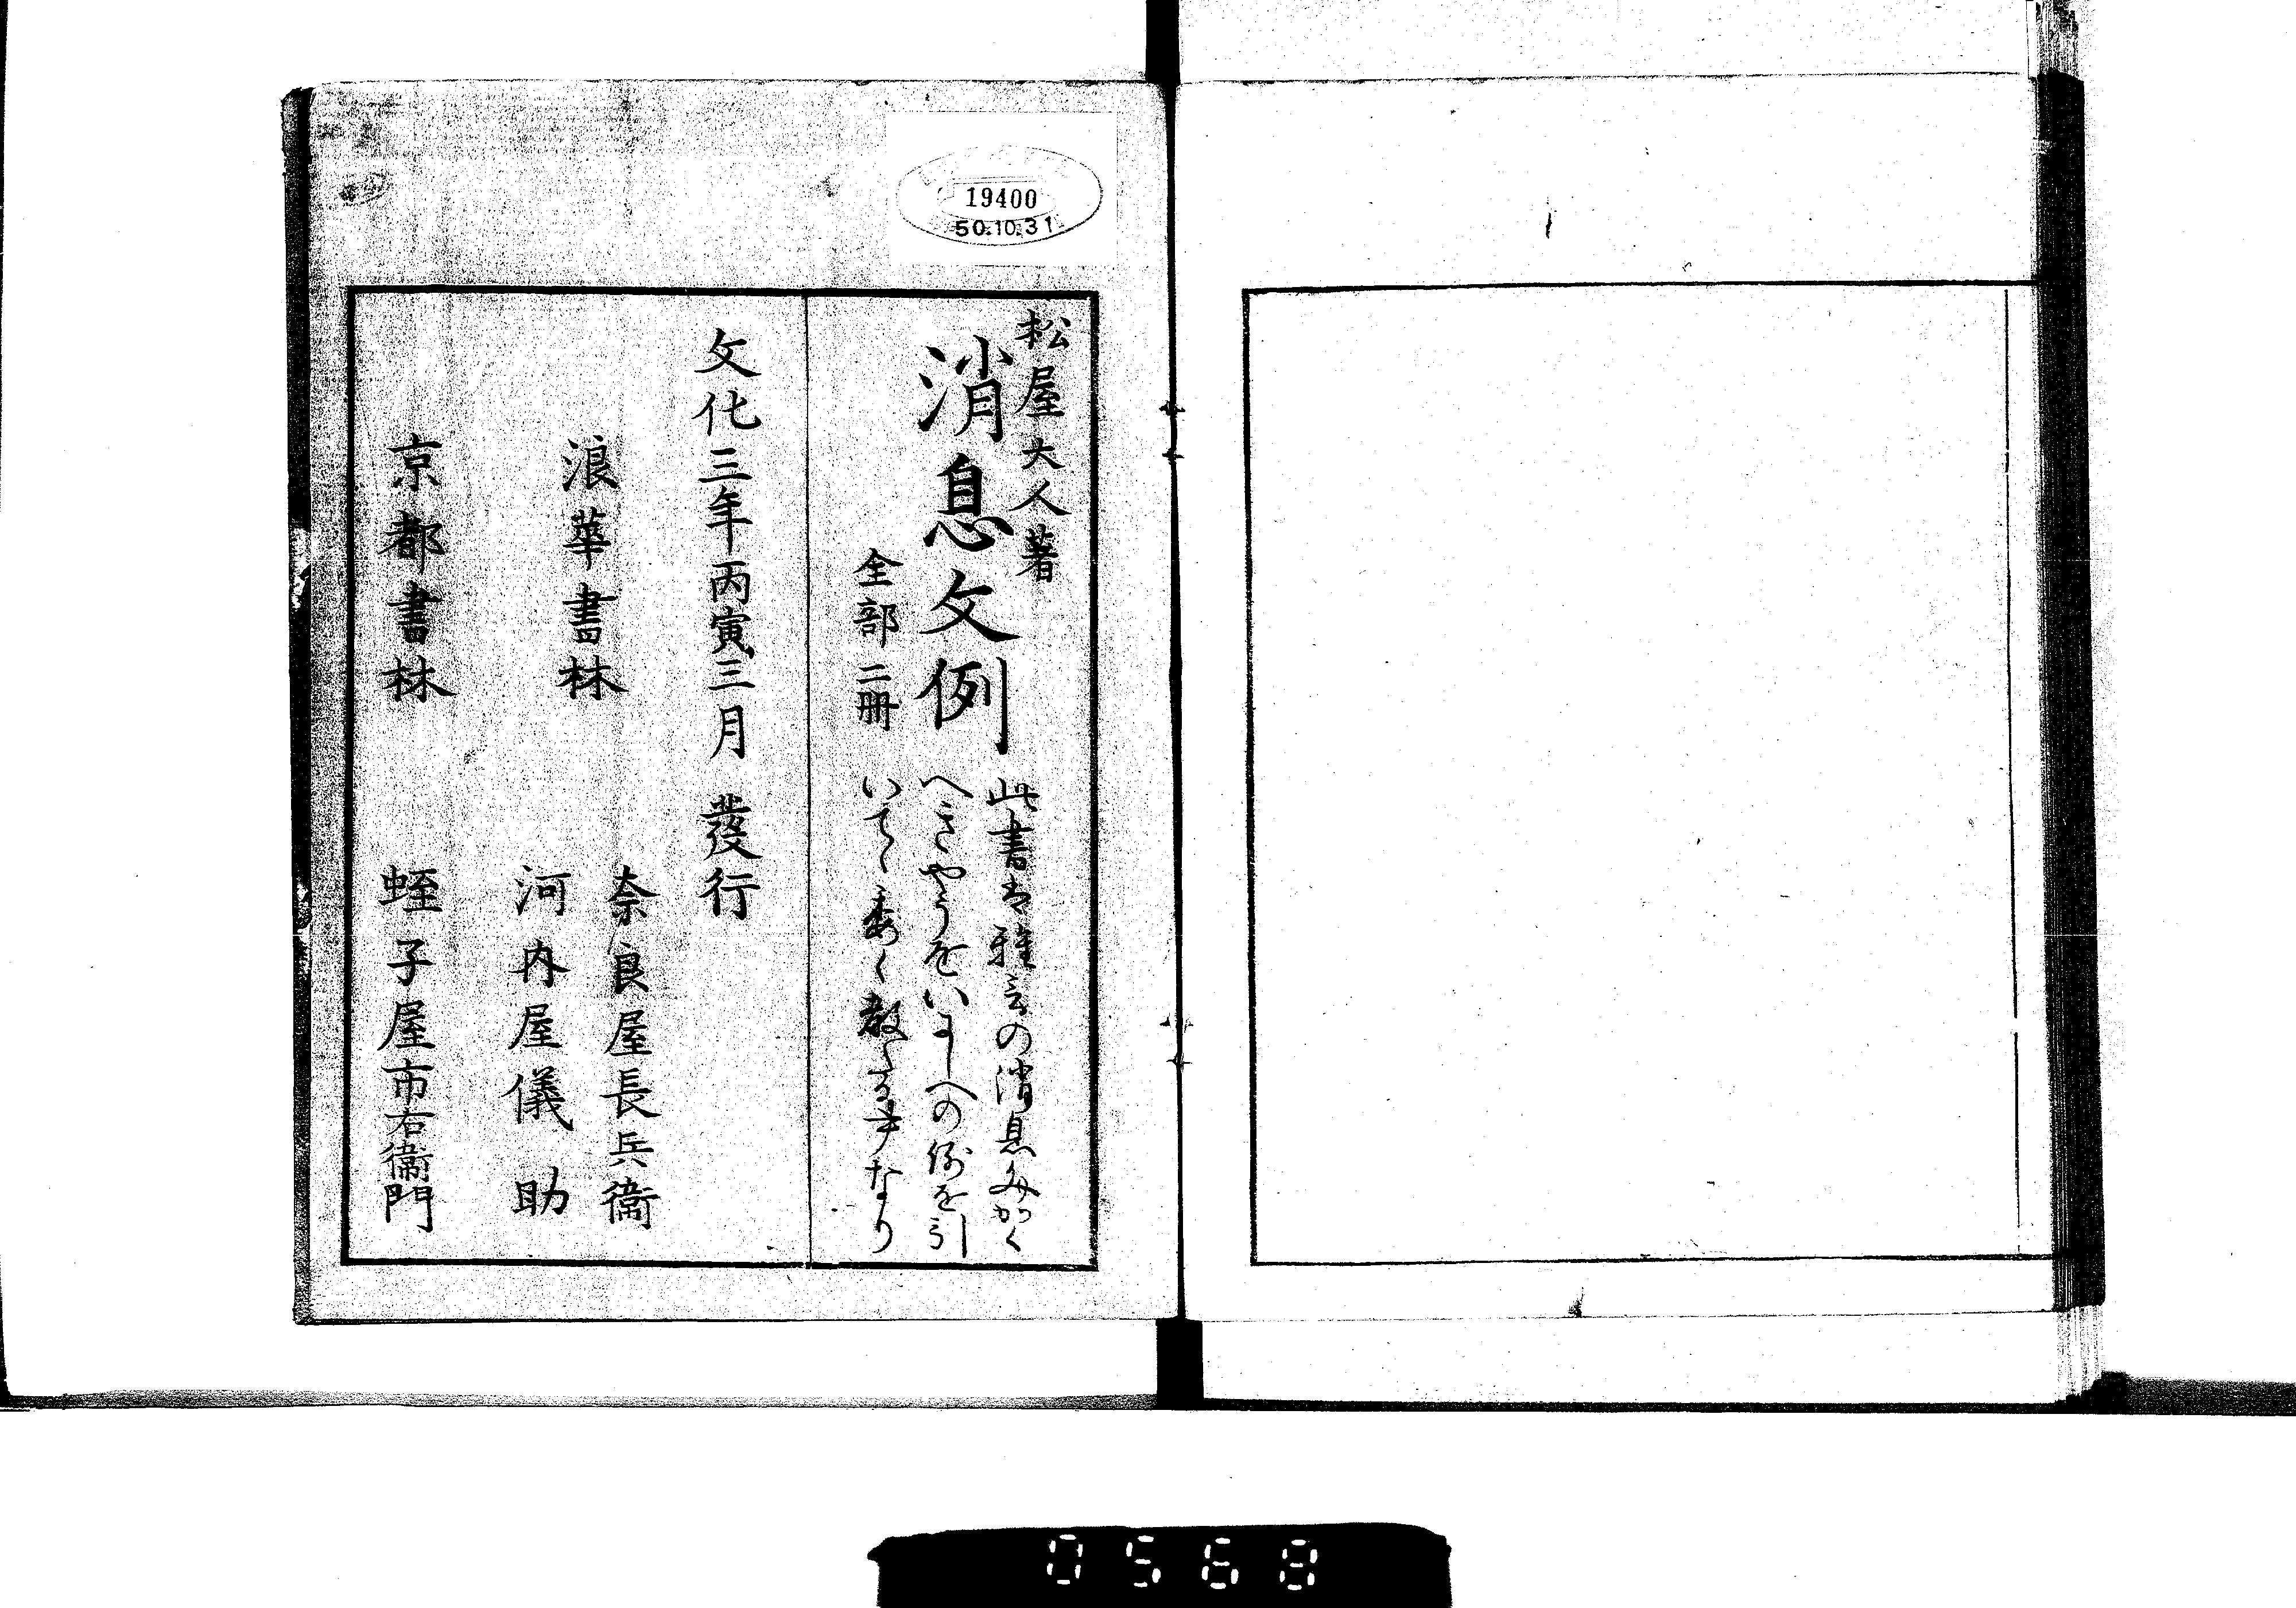 19400
50.10.31
松屋大人著
消息文例
全部二冊
此書は雅言の消息文かく
へきやうをいにしへの例を引
いてゝ委く教たる書なり
文化三年丙寅三月 發行
浪華書林
奈良屋長兵衞
河内屋儀助
京都書林
蛭子屋市右衞門
0568